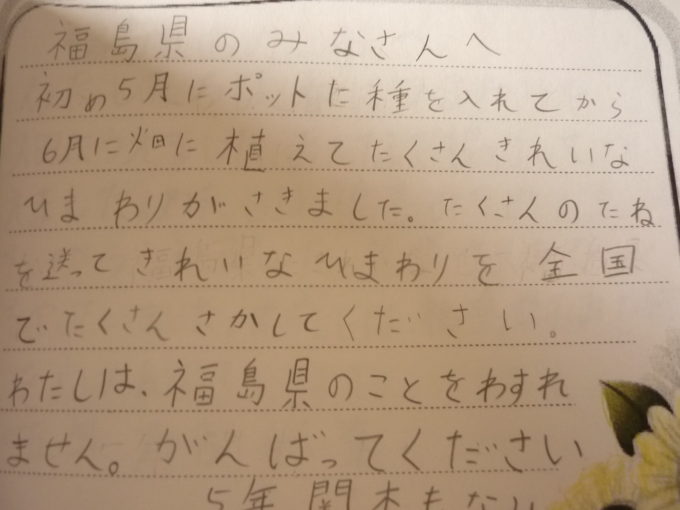 福島県のみなさんへ
初め5月にポットに種を入れてから
6月に畑に植えてたくさんきれいな
ひまわりがさきました。たくさんのたね
を送ってきれいなひまわりを全国
でたくさんさかしてください。
わたしは、福島県のことをわすれ
ません。がんばってください
5年